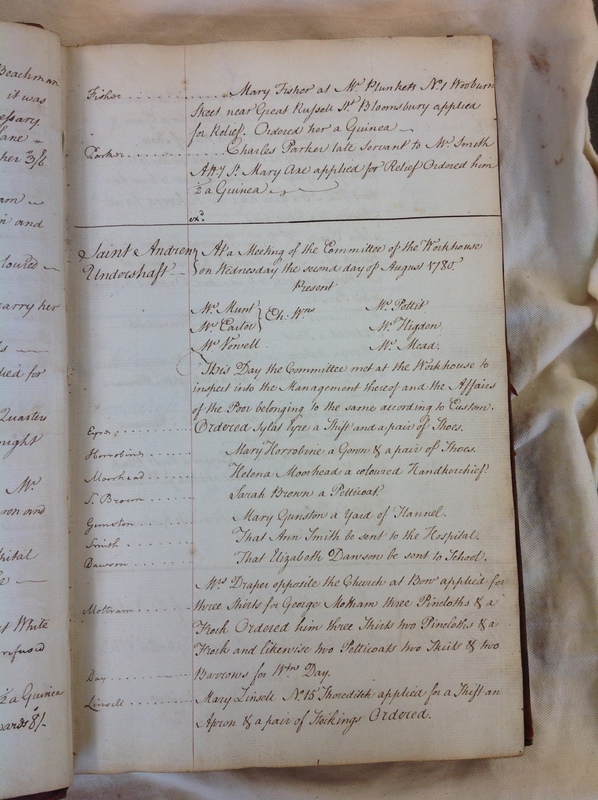 Beachman
it was
essary
lane
her 3/6
and
loured
carry her
ued for
Quarters
night
Mr
pital
st White
refused
½ a Guinea
wards 8/-
Fisher .......... Mary Fisher at Mr Plunkets No. 1 Wooburn
Street near Great Russell Stt. Bloomsbury applied
for Relief. Ordered her a Guinea
Parker .......... Charles Parker late Servant to Mr Smith
At 7 St. Mary Axe applied for Relief Ordered him
½ a Guinea
exd.
Saint Andrew At a Meeting of the Committee of the Workhouse
Undershaft on Wednesday the second day of August 1780.
Present
Mr Munt Mr Pettit
Mr Easton } Ch. Wns Mr Higdon
Mr Vowell Mr Mead.
This Day the Committee met at the Workhouse to
inspect into the Management thereof and the Affairs
of the Poor belonging to the same according to Custom.
Eyre .......... Ordered Sylas Eyre a Shift and a pair of Shoes.
Horrobine ....... Mary Horrobine a Gown & a pair of Shoes.
Moorhead ....... Helena Moorhead a coloured Handkerchief.
S. Brown ....... Sarah Brown a Petticoat.
Gunston ........ Mary Gunston a Yard of Flannel.
Smith ........ That Ann Smith be sent to the Hospital.
Dawson ........ That Elizabeth Dawson be sent to School.
Mrs Draper opposite the Church at Bow applied for
Mottram ........ three Shirts for George Mottram three Pincloths & a
Frock Ordered him three Shirts two Pincloths & a
Frock and likewise two Petticoats two Skirts & two
Day .......... Barrows for Wm Day.
Linsell ........ Mary Linsell No. 15 Shoreditch applied for a Shift an
Apron & a pair of Stockings Ordered.